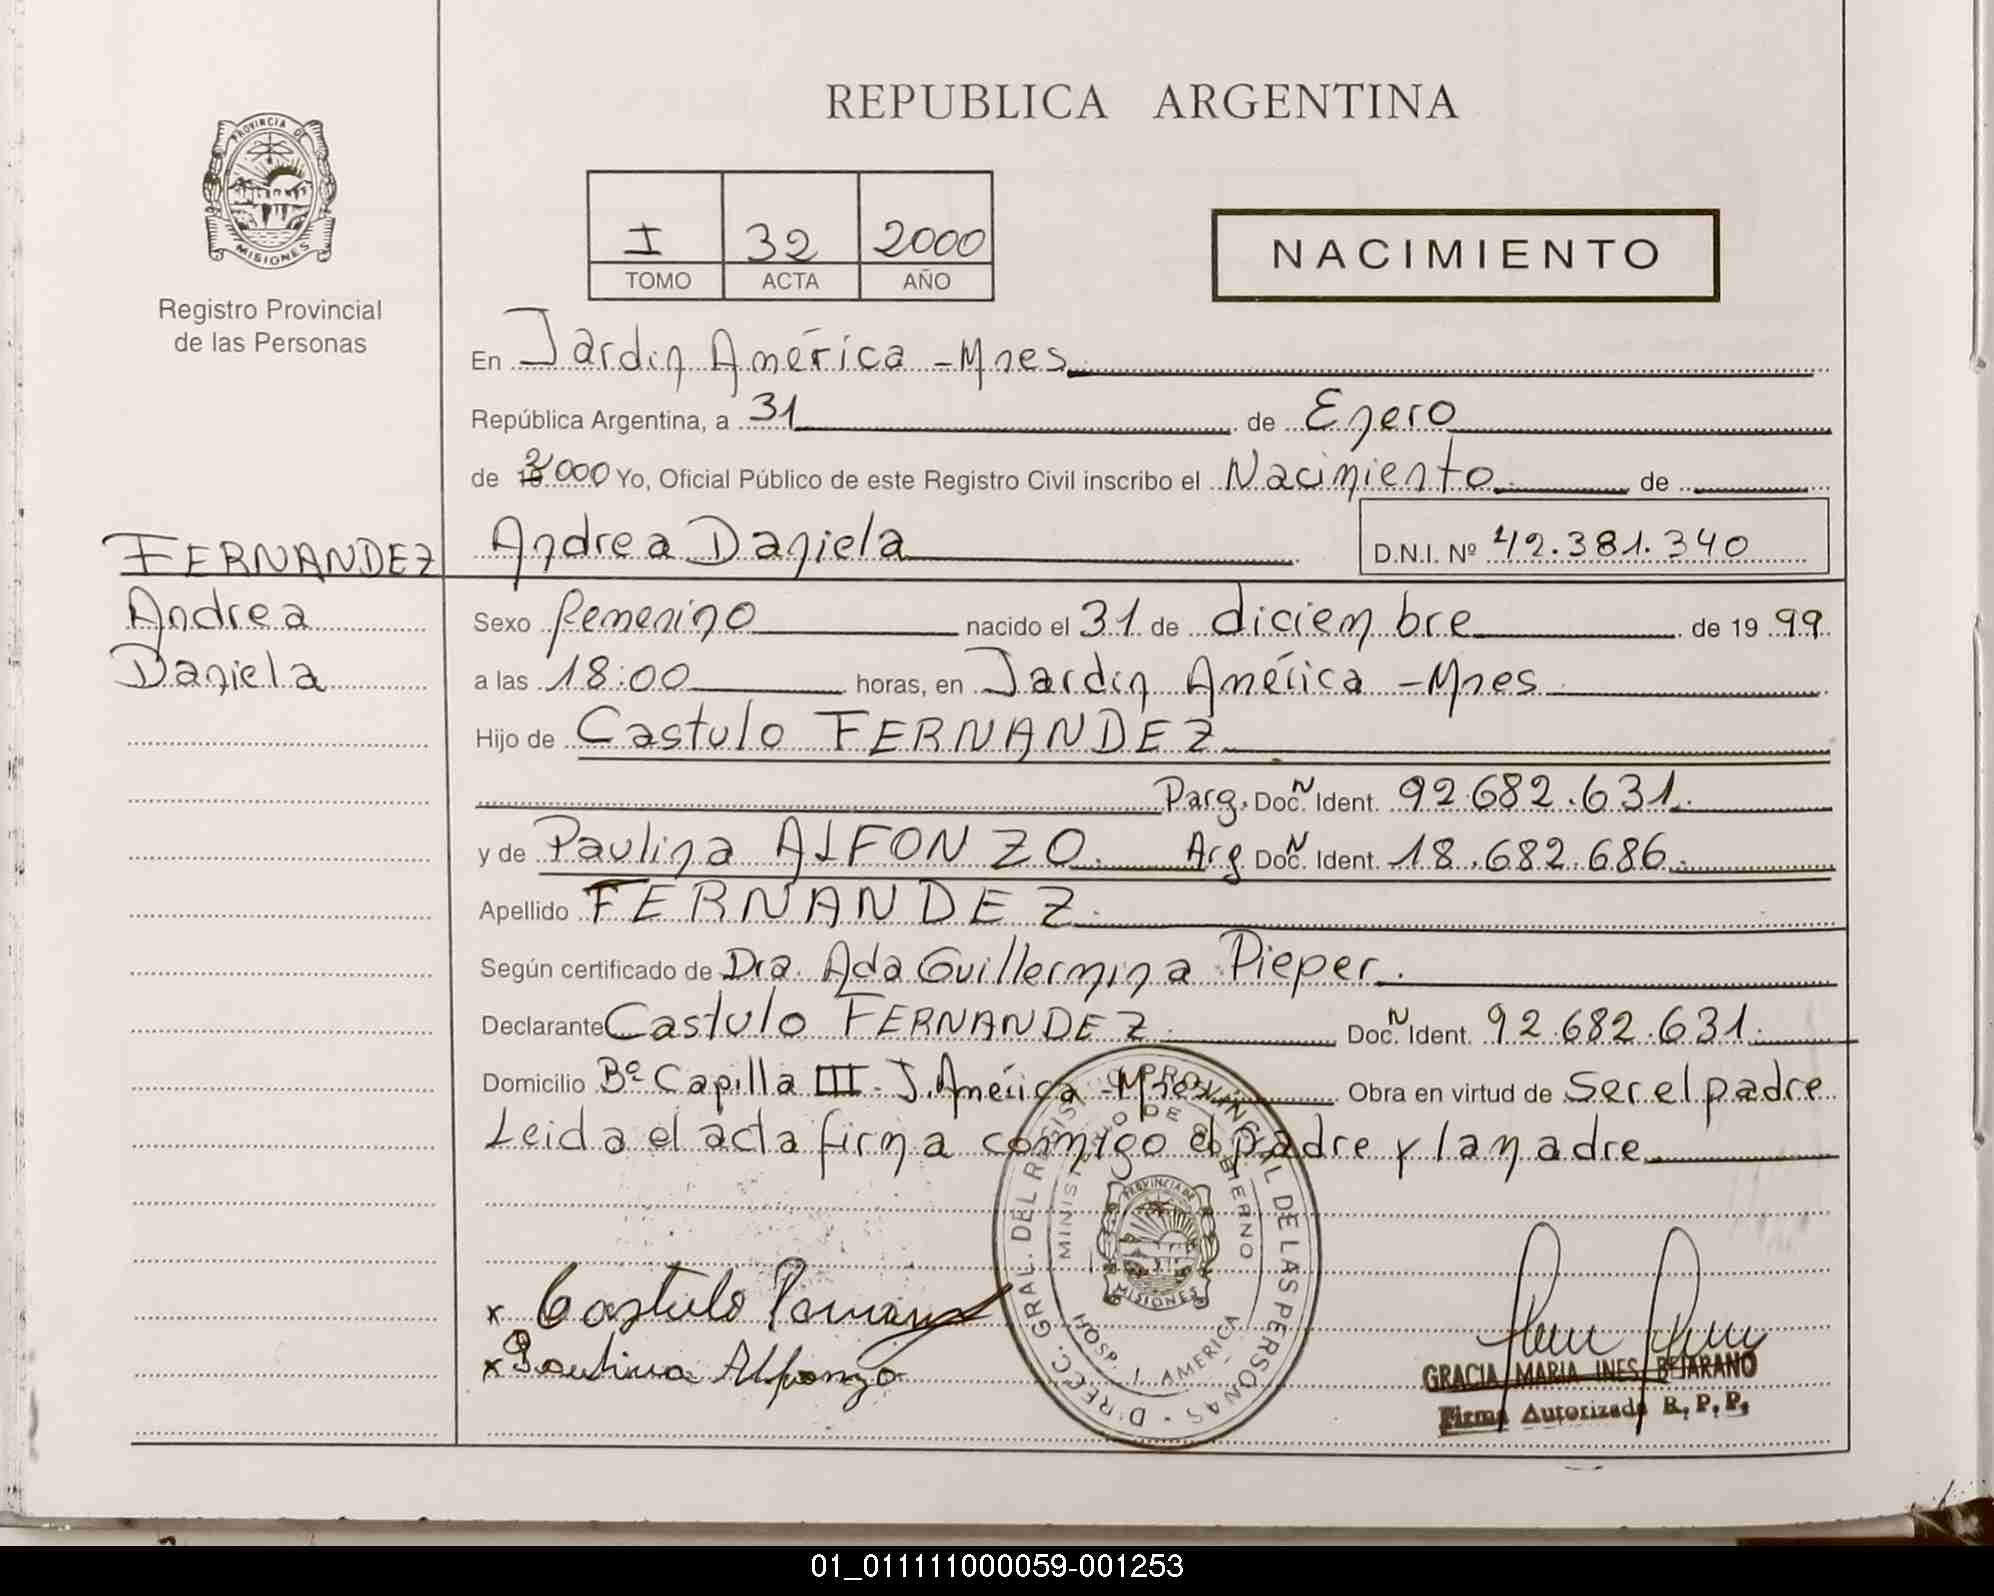 REPUBLICA ARGENTINA
PROVINCIA DE
MISIONES
Registro Provincial
de las Personas
I 32 2000
TOMO ACTA AÑO
NACIMIENTO
En Jardin América - Mnes
República Argentina, a 31 de Enero
de 2000 Yo, Oficial Público de este Registro Civil inscribo el Nacimiento de
FERNANDEZ Andrea Daniela D.N.I. Nº 42.381.340
Andrea
Daniela
Sexo femenino nacido el 31 de diciembre de 19 99
a las 18:00 horas, en Jardin América - Mnes
Hijo de Castulo FERNANDEZ
Parg. Doc. N Ident. 92.682.631.
y de Paulina ALFONZO. Arg Doc. N Ident. 18.682.686.
Apellido FERNANDEZ.
Según certificado de Dra. Ada Guillermina Pieper.
Declarante Castulo FERNANDEZ. Doc. N Ident. 92.682.631.
Domicilio Bº Capilla III - J. América - Mnes. Obra en virtud de Ser el padre
Leida el acta firma conmigo el padre y la madre
DIREC. GRAL. DEL REGISTRO PROVINCIAL DE LAS PERSONAS
MINISTERIO DE GOBIERNO
PROVINCIA DE
MISIONES
HOSP. J. AMERICA
x Castulo
x Paulina Alfonzo
GRACIA MARIA INES BEJARANO
Firma Autorizada R. P. P.
01_011111000059-001253